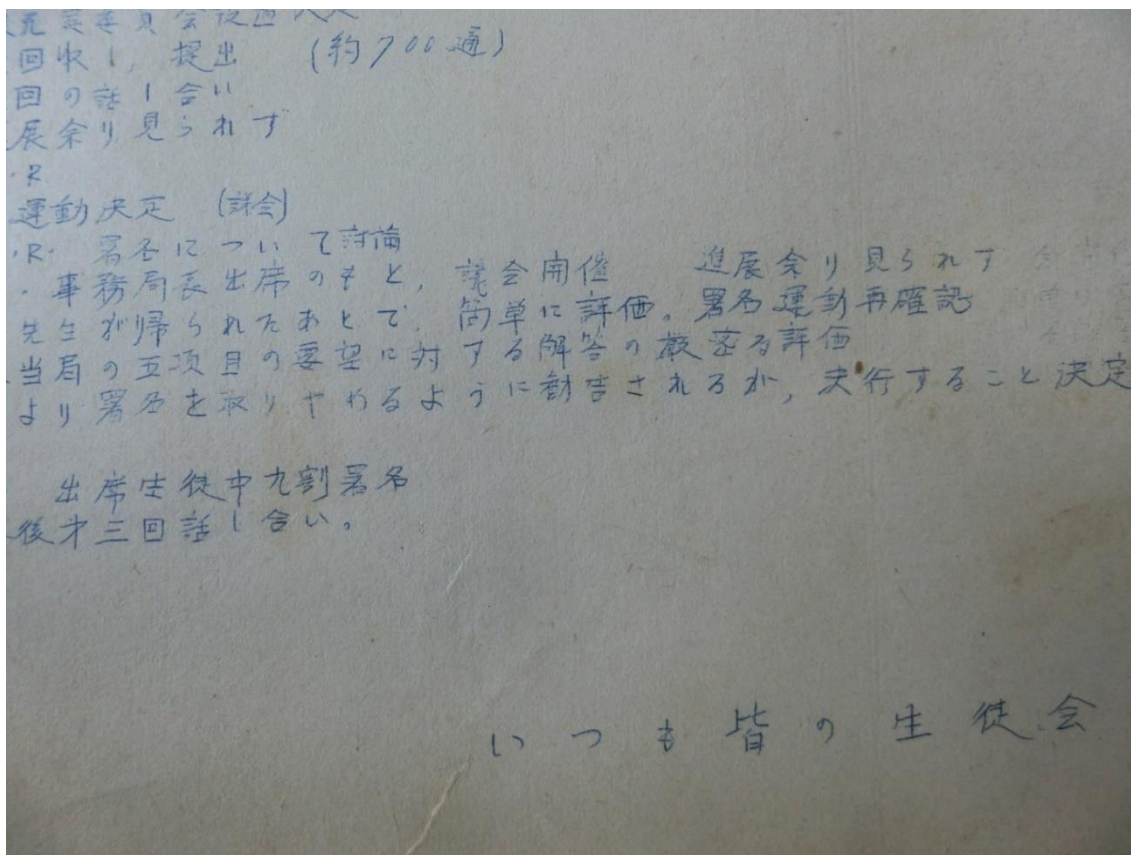 回収し, 提出 (約700通)
回の話し合い
展余り見られず
・R
運動決定 (議会)
・R・ 署名について討論
・事務局長出席のもと, 議会開催 進展余り見られず
先生が帰られたあとで, 簡単に評価。署名運動再確認
当局の五項目の要望に対する解答の厳密な評価
より署名を取りやめるように勧告されるが, 決行すること決定
出席生徒中九割署名
後才三回話し合い。
いつも皆の生徒会